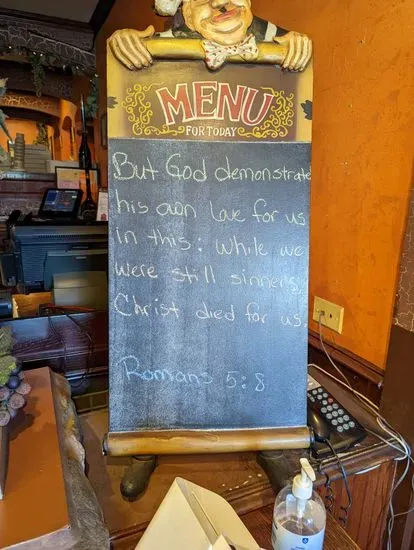 MENU
FOR TODAY
But God demonstrate
his own love for us
in this: while we
were still sinners,
Christ died for us.
Romans 5:8